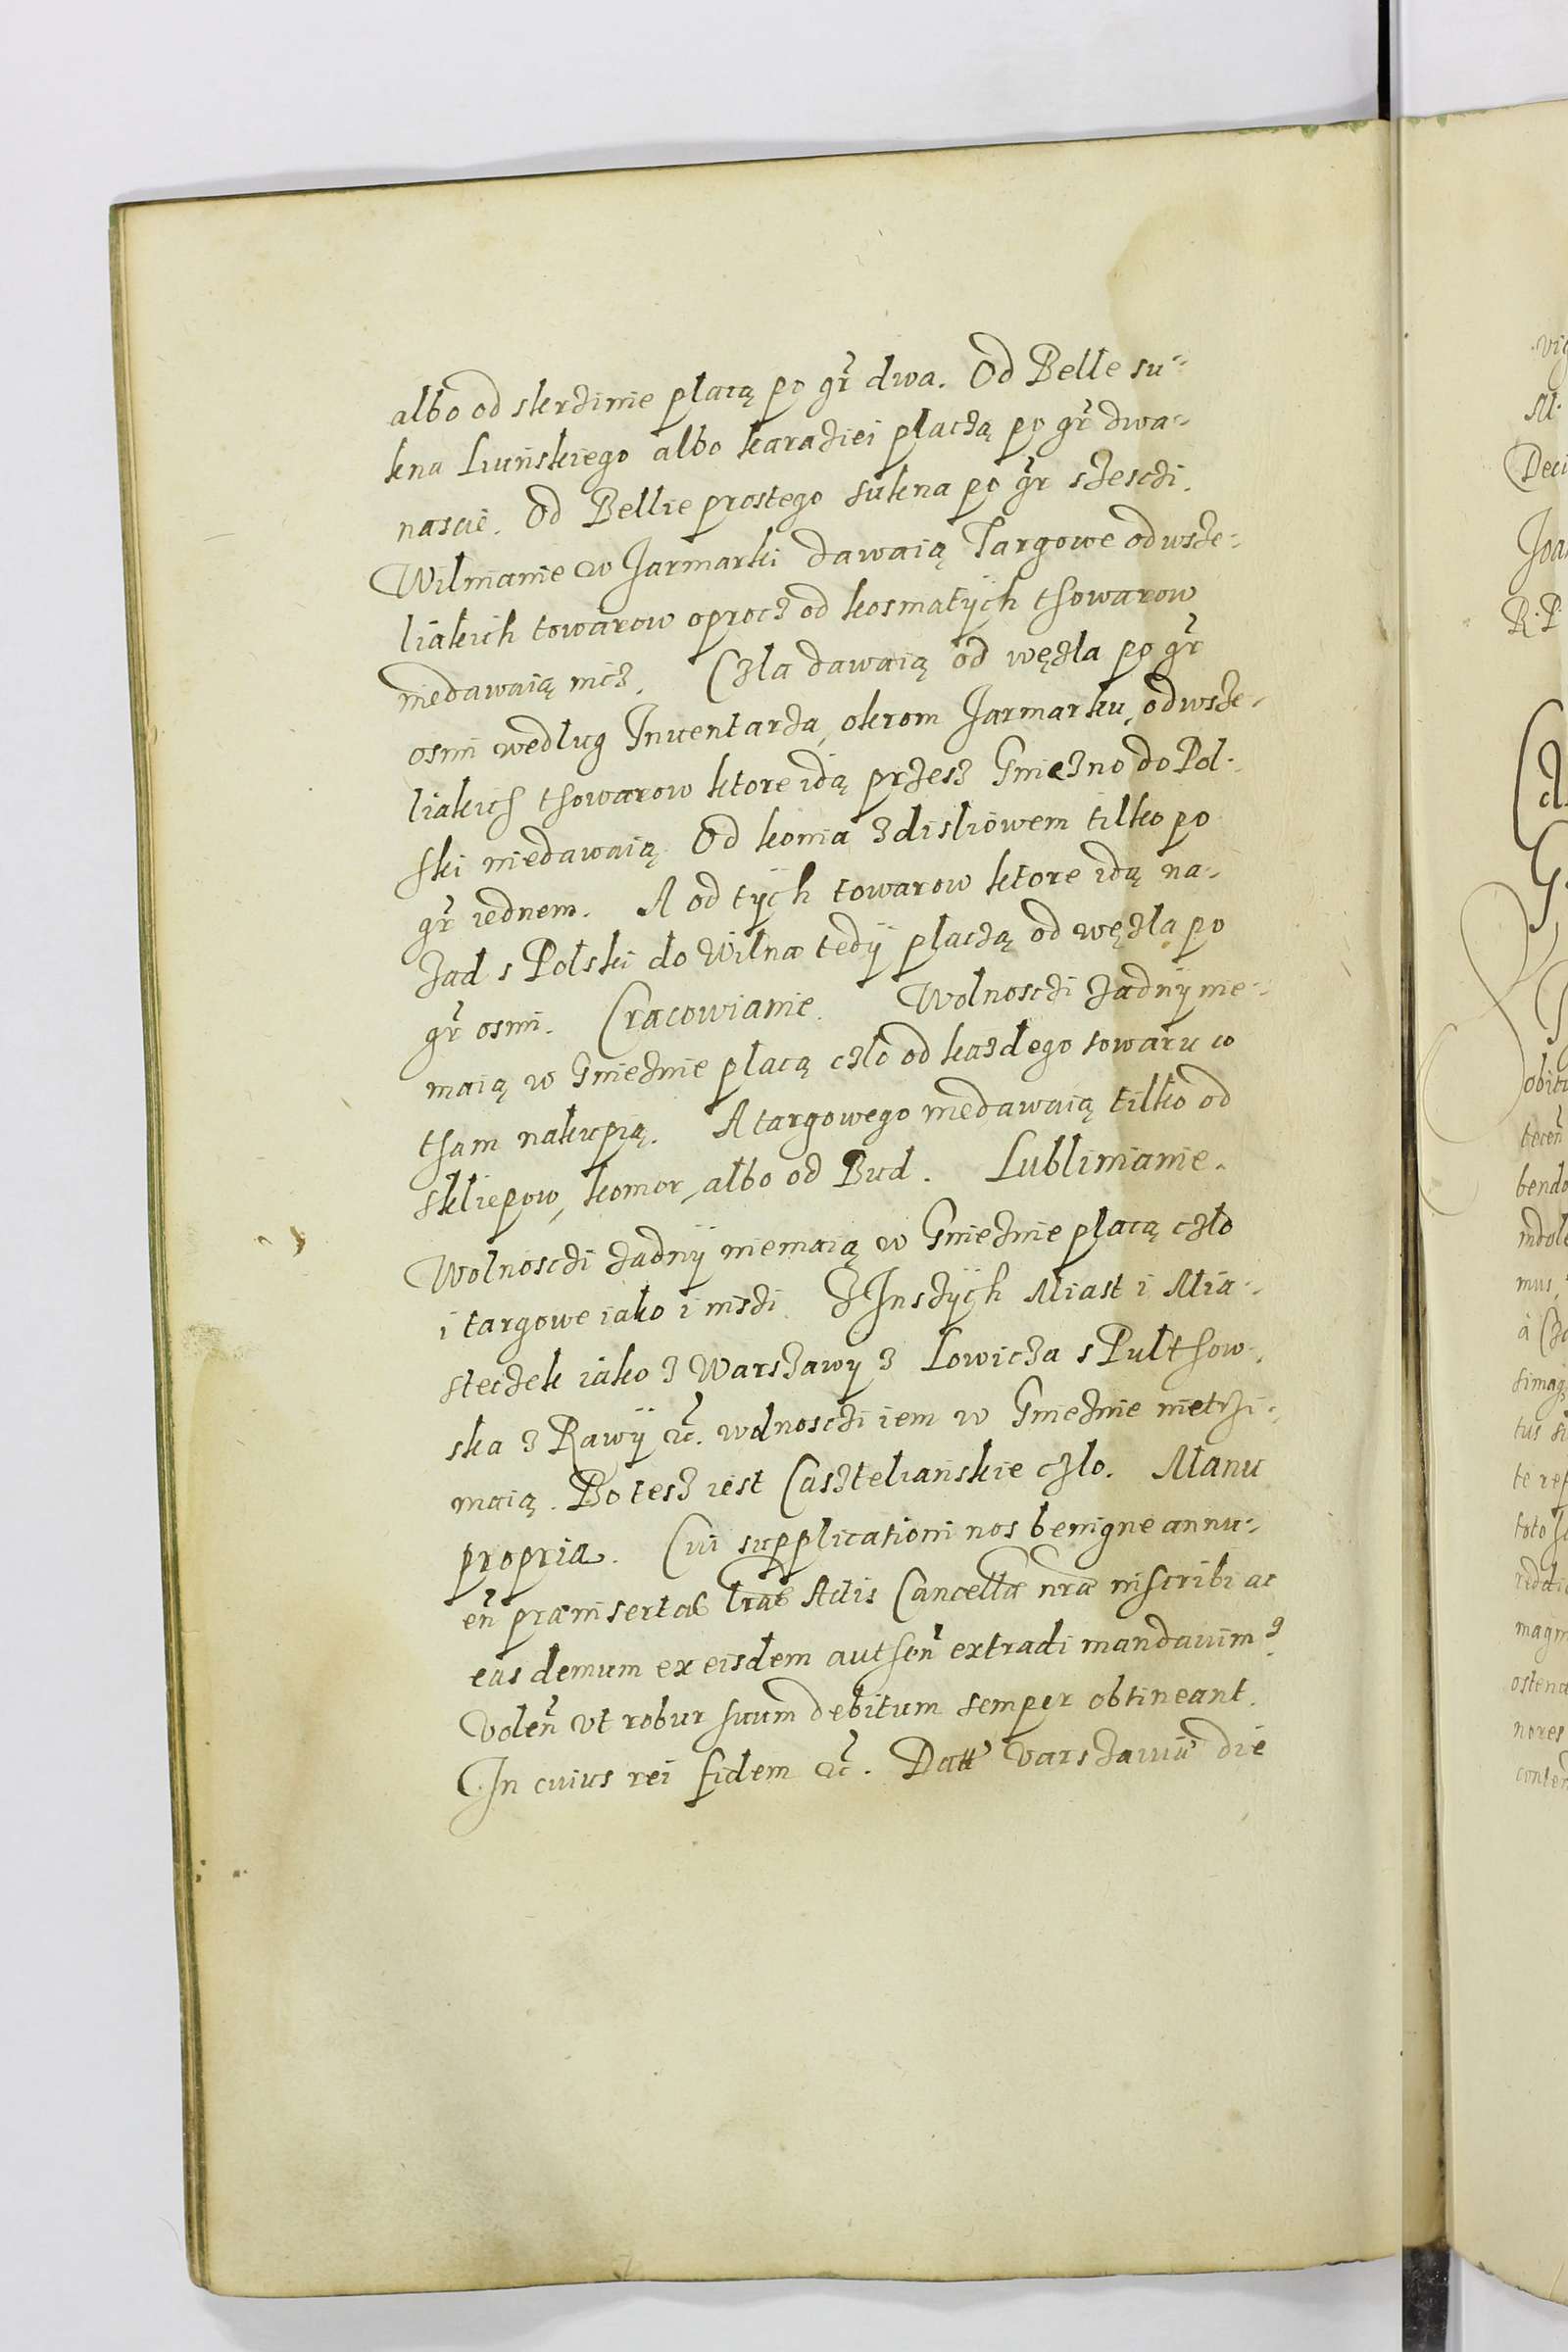 albo od skrzinie płacą po gr̃ dwa. Od Belle su-
kna Luńskiego albo karaziei płaczą po gr̃ dwa-
nascie. Od Bellie prostego sukna po gr̃ szesczi.
Wilnianie w Jarmarki dawaią Targowe od wsze-
liakich towarow oprocz od kosmatÿch thowarow
niedawaią nicz. Czla dawaią od węzla po gr̃
osmi wedlug Inuentarza, okrom Jarmarku, od wsze-
liakich thowarow ktore idą przesz Gniezno do Pol-
ski niedawaią Od konia z disliowem tilko po
gr̃ iednem. A od tÿch towarow ktore idą na-
zad s Polski do Wilna tedÿ płaczą od węzla po
gr̃ osmi. Cracowianie. Wolnosczi zadnÿ nie-
maią w Gnieznie płacą czlo od kazdego towaru co
tham nakupią. A targowego niedawaią tilko od
skliepow, komor, albo od Bud. Lublinianie.
Wolnosczi zadnÿ niemaią w Gnieznie płacą czło
i targowe iako i inszi Z Inszÿch Miast i Mia-
steczek iako z Warszawy z Lowicza s Pulthow-
ska z Rawÿ &c̃. wolnosczi iem w Gnieznie nietrzi-
maią. Bo tesz iest Caszteliańskie czlo. Manu
propria. Cui supplicationi nos benigne annu-
eñ præinsertas lr̃as Actis Cancellæ nr̃æ inscribi ac
eas demum ex eisdem autheñ extradi mandauim9
Voleñ vt robur suum debitum semper obtineant.
In cuius rei fidem &c̃. Datt Varszauiæ die